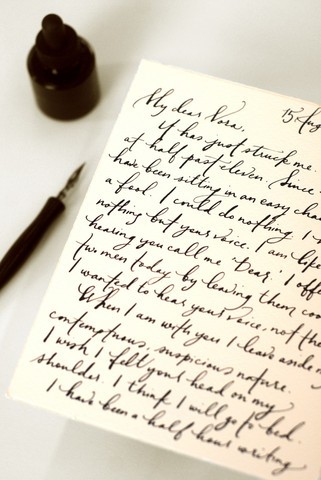 My dear Nora,
15 Aug
It has just struck me.
at half past eleven. Since
have been sitting in an easy chai
a fool. I could do nothing. I
nothing but your voice. I am like
hearing you call me 'Dear.' I offe
two men today by leaving them coo
I wanted to hear your voice, not the
When I am with you I leave aside m
contemptuous, suspicious nature.
I wish I felt your head on my
shoulder. I think I will go to bed.
I have been a half hour writing